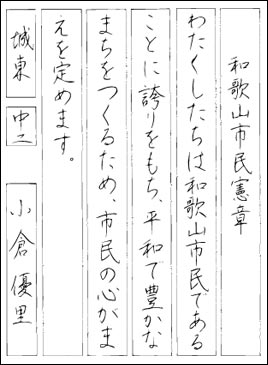 和歌山市民憲章
わたくしたちは和歌山市民である
ことに誇りをもち、平和で豊かな
まちをつくるため、市民の心がま
えを定めます。
城東 中二 小倉優里